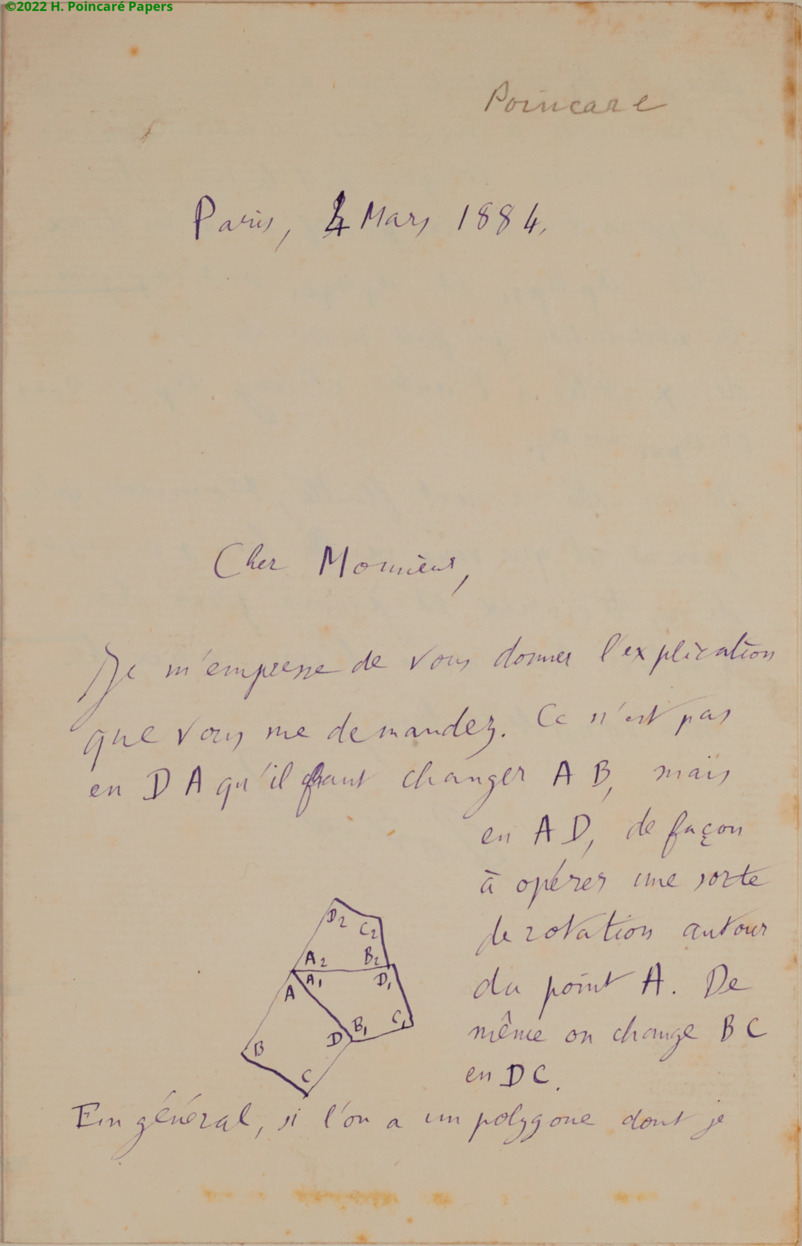 ©2022 H. Poincaré Papers
Poincare
Paris, 4 Mars 1884.
Cher Monsieur,
Je m'empresse de vous donner l'explication
que vous me demandez. Ce n'est pas
en DA qu'il faut changer AB, mais
en AD, de façon
à opérer une sorte
de rotation autour
du point A. De
même on change BC
en DC.
D2 C2
A2 B2
A A1 D1
B D B1 C1
C
En général, si l'on a un polygone dont je